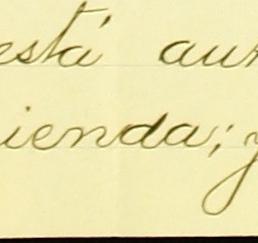 está aun
ienda; y